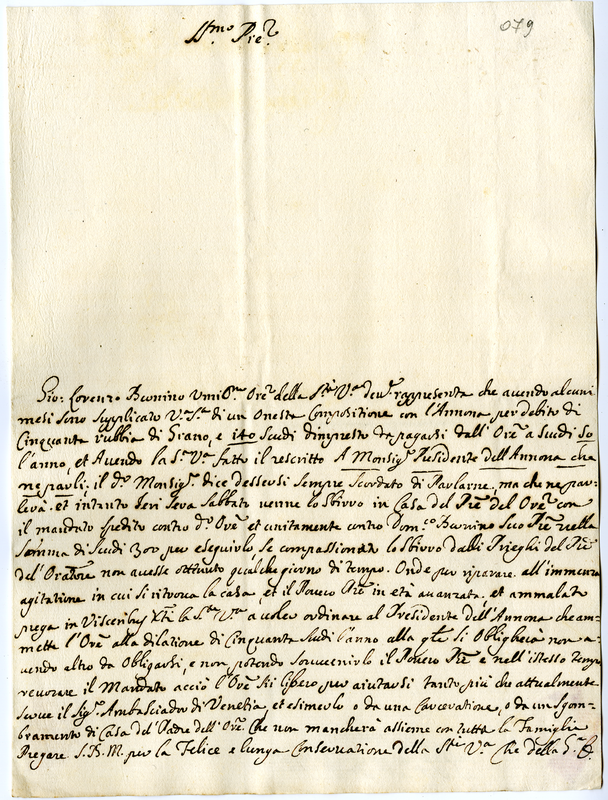 079
Bmo Pre
Gio: Lorenzo Bernino Umilmo Ore della Stà Va devte rappresenta che avendo alcuni
mesi sono supplicato Va Sà di un Onesta Compositione con l'Annona per debito di
Cinquanta rubbia di Grano, e 140 Scudi d'impresto da pagarsi dall'Ore a Scudi 50
l'anno, et Avendo la Stà Va fatto il rescritto A Monsigr Presidente dell'Annona che
ne parli; il do Monsigr dice dessersi Sempre Scordato di Parlarne, ma che ne par-
lerà. et intanto Ieri Sera Sabbato venne lo Sbirro in Casa del Pre del Ore con
il mandato spedito contro do Ore et unitamente contro Domco Bernino Suo Pre nella
Somma di Scudi 300 per eseguirlo Se compassionato lo Sbirro dalli Prieghi del Pre
del'Oratore non avesse ottenuto qualche giorno di tempo. Onde per riparare all'immensa
agitatione in cui si ritrova la casa, et il Povero Pre in età avanzata, et ammalato
prega in Visceribus Xti la Stà Va a voler ordinare al Presidente dell'Annona che am-
mette l'Ore alla dilatione di Cinquanta Scudi l'anno alla qle Si Obligherà non a-
vendo altro da Obligarsi, e non potendo Souvenirlo il Povero Pre e nell'istesso tempo
revocare il Mandato acciò l'Ore Stii libero per aiutarsi tanto più che attualmente
Serve il Sigr Ambasciador di Venetia, et esimerlo o da una Carceratione, o da un Sgom-
bramento di Casa del Padre dell'Ore Che non mancherà assieme con tutta la Famiglia
Pregare S.D.M. per la Felice e lunga Conservatione della Stà Va Che della